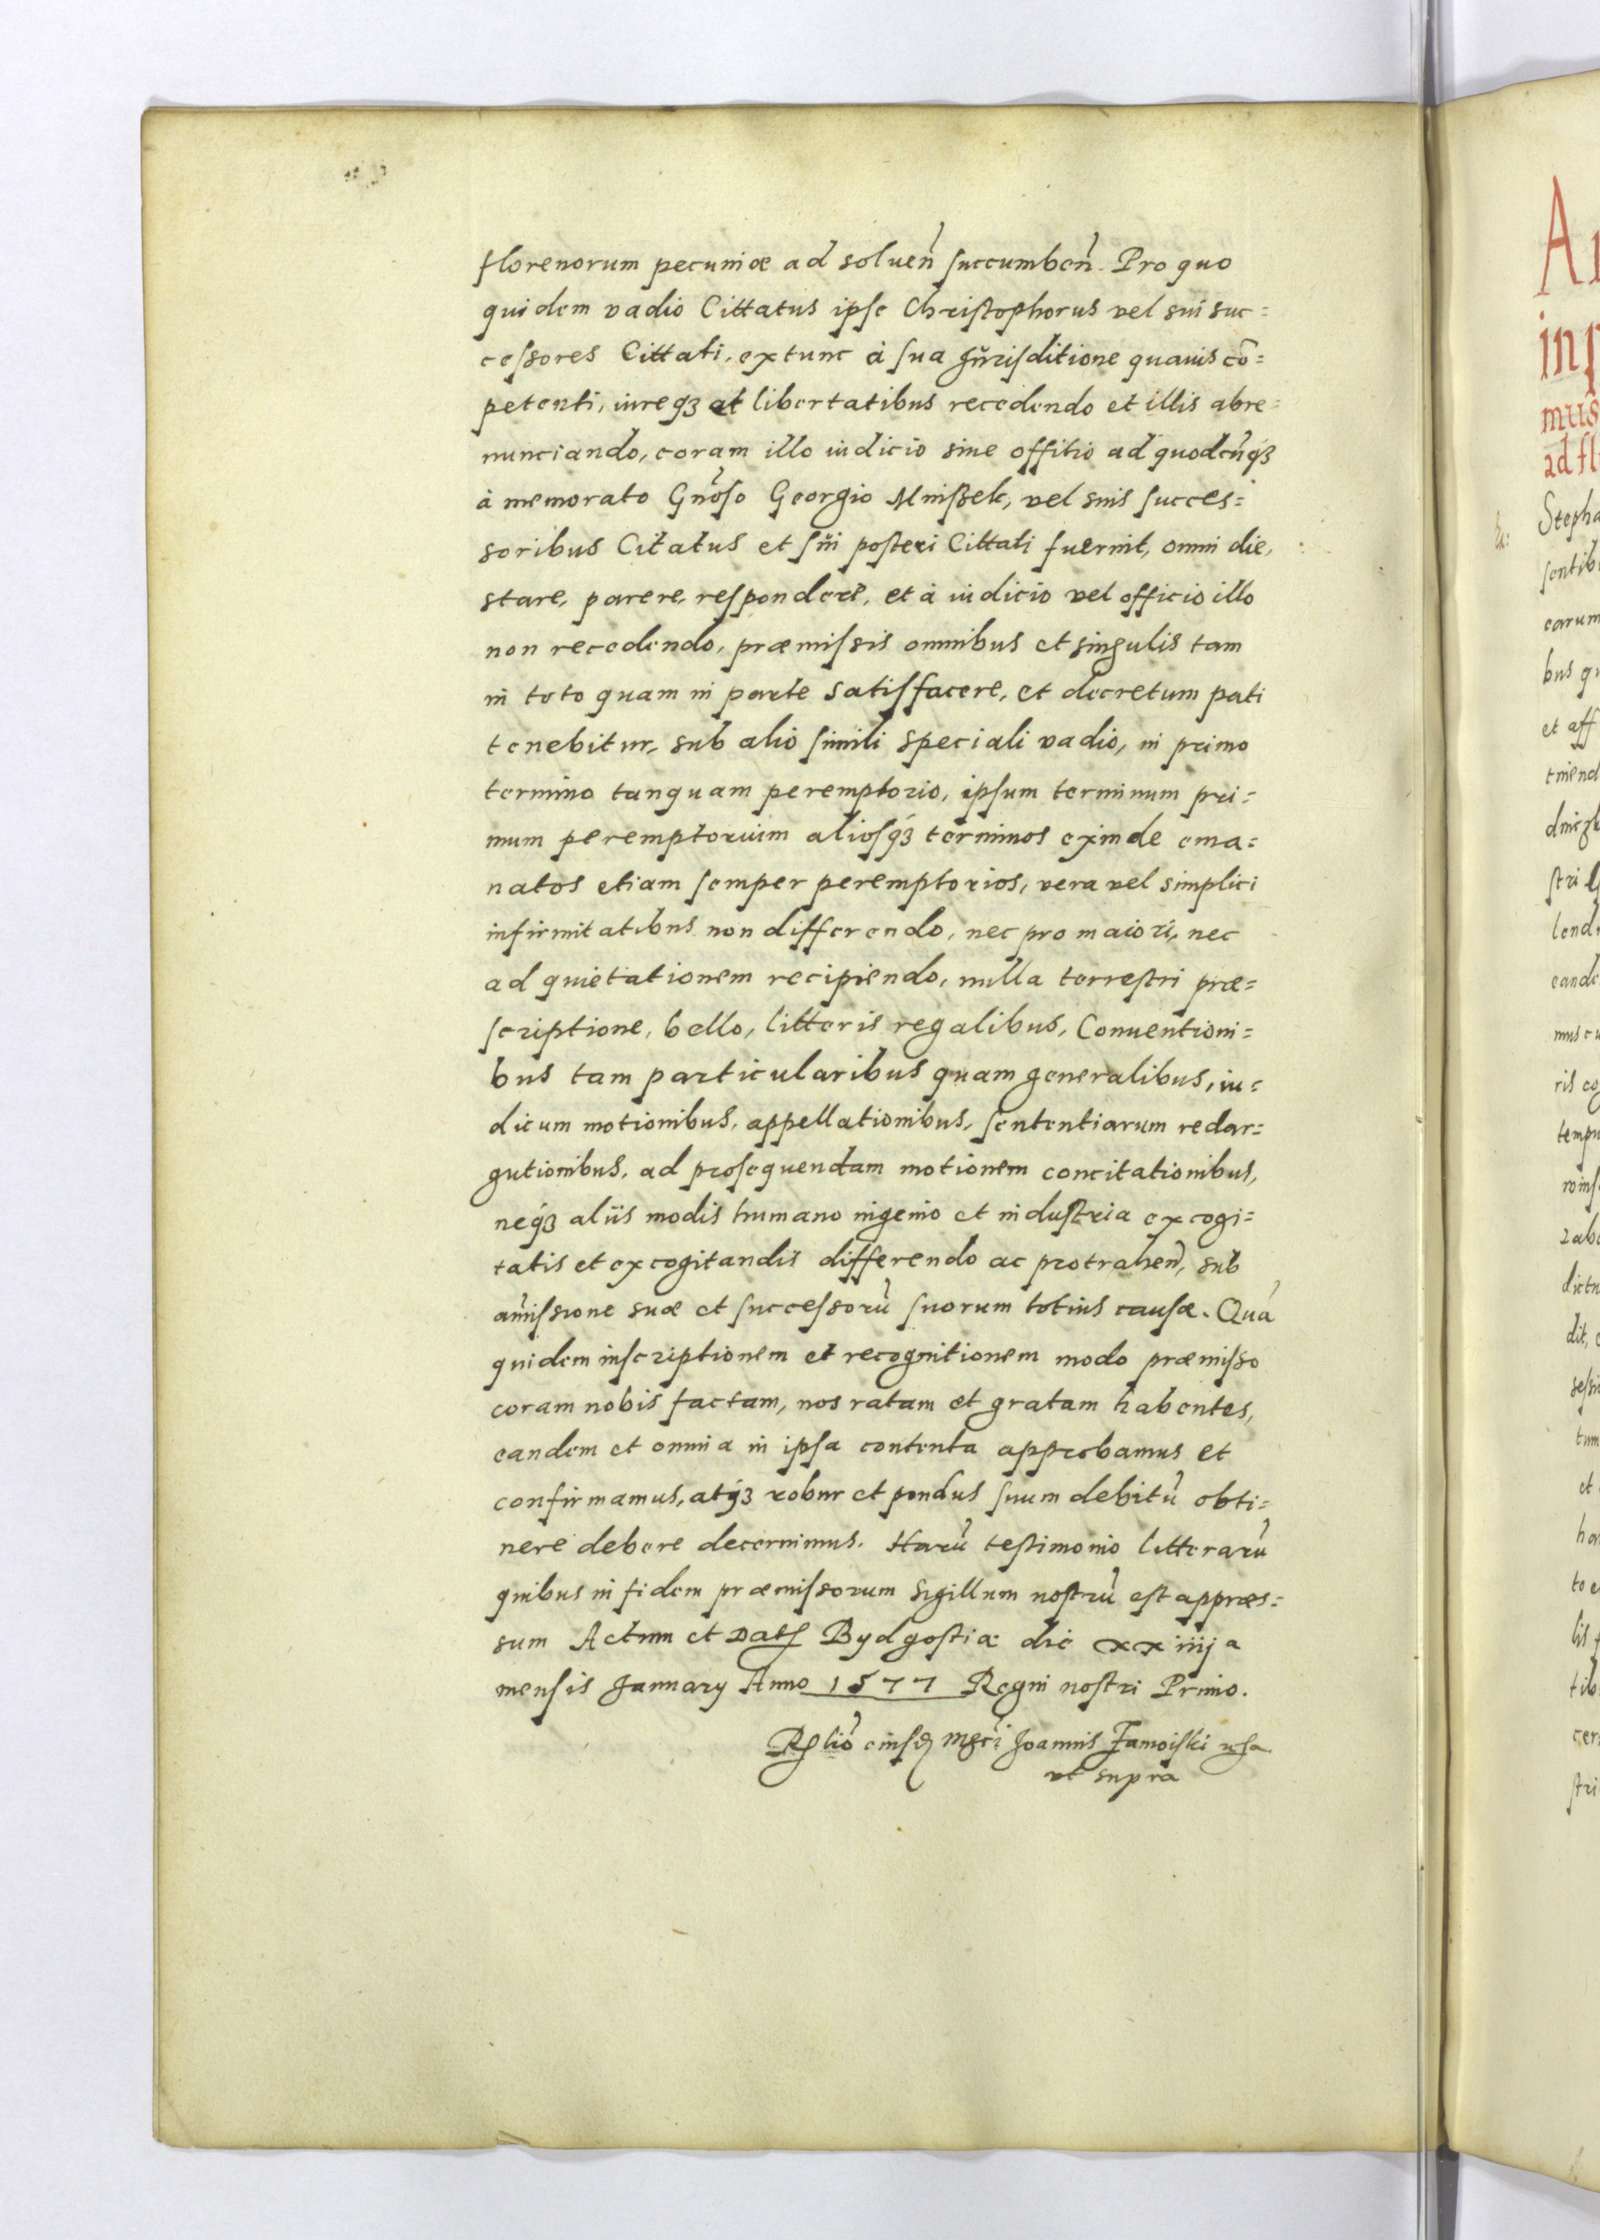 florenorum pecuniæ ad soluen̄ succumben̄. Pro quo
quidem vadio Cittatus ipse Christophorus vel sui suc=
cessores Cittati, extunc à sua Jurisditione quauis cō=
petenti, iureqꝫ et libertatibus recedendo et illis abre=
nunciando, coram illo iudicio siue offitio ad quodcūqꝫ
à memorato Gn̄oso Georgio Mniszek, vel suis succes=
soribus Citatus et sui posteri Cittati fuerint, omni die,
stare, parere, respondere, et à iudicio vel officio illo
non recedendo, præmissis omnibus et singulis tam
in toto quam in parte satisfacere, et decretum pati
tenebitur, sub alio simili speciali vadio, in primo
termino tanquam peremptorio, ipsum terminum pri=
mum peremptorium aliosqꝫ terminos exinde ema=
natos etiam semper peremptorios, vera vel simplici
infirmitatibus non differendo, nec pro maiori, nec
ad quietationem recipiendo, nulla terrestri præ=
scriptione, bello, litteris regalibus, Conuentioni=
bus tam particularibus quam generalibus, iu=
dicum motionibus, appellationibus, sententiarum redar=
gutionibus, ad prosequendam motionem concitationibus,
neqꝫ aliis modis humano ingenio et industria excogi=
tatis et excogitandis differendo ac protrahen̄, sub
amissione suæ et successorū suorum totius causæ. Quā
quidem inscriptionem et recognitionem modo præmisso
coram nobis factam, nos ratam et gratam habentes,
eandem et omnia in ipsa contenta approbamus et
confirmamus, atqꝫ robur et pondus suum debitū obti=
nere debere decernimus. Harū testimonio litterarū
quibus in fidem præmissorum sigillum nostrū est appræs=
sum Actum et Dat. Bydgostiæ die xxiiij a
mensis January Anno 1577 Regni nostri Primo.
Rlio eiusdē Mgci Joannis Zamoiski
ut supra